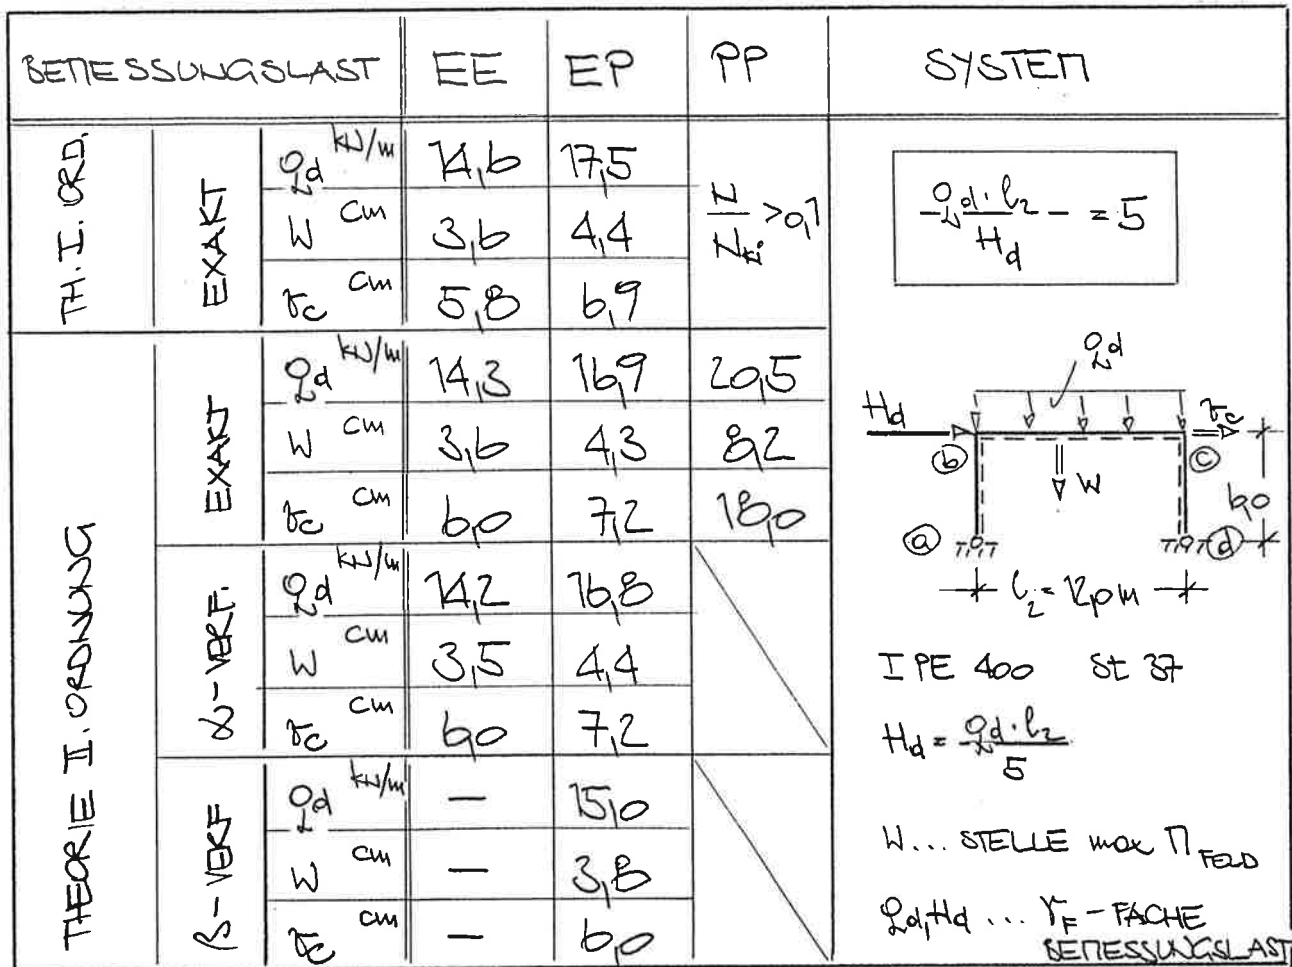 BEMESSUNGSLAST EE EP PP SYSTEM
TH. I. ORD.
EXAKT
qd kN/m 14,6 17,5
W cm 3,6 4,4
vc cm 5,8 6,9
N/Nki > 0,1
THEORIE II. ORDNUNG
EXAKT
qd kN/m 14,3 16,9 20,5
W cm 3,6 4,3 8,2
vc cm 6,0 7,2 18,0
α-VERF.
qd kN/m 14,2 16,8
W cm 3,5 4,4
vc cm 6,0 7,2
β-VERF
qd kN/m — 15,0
W cm — 3,8
vc cm — 6,0
qd · l2 / Hd = 5
qd
Hd
vc
b
c
W
6,0
a
d
l2 = 12,0 m
IPE 400 St 37
Hd = qd · l2 / 5
W... STELLE max M FELD
qd, Hd ... γF-FACHE
BEMESSUNGSLAST